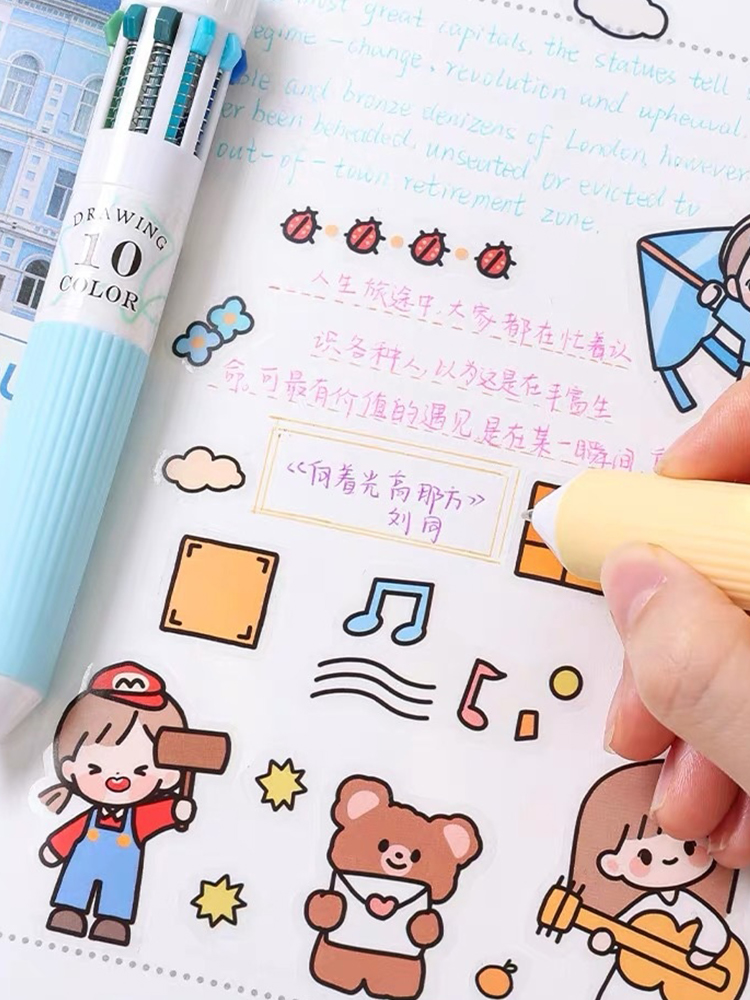 most great capitals, the statues tell
regime-change, revolution and upheuval.
ble and bronze denizens of London, however
er been beheaded, unseated or evicted to
out-of-town retirement zone.
DRAWING
10
COLOR
人生旅途中,大家都在忙着认
识各种人,以为这是在丰富生
命。可最有价值的遇见,是在某一瞬间,
《向着光亮那方》
刘同
M